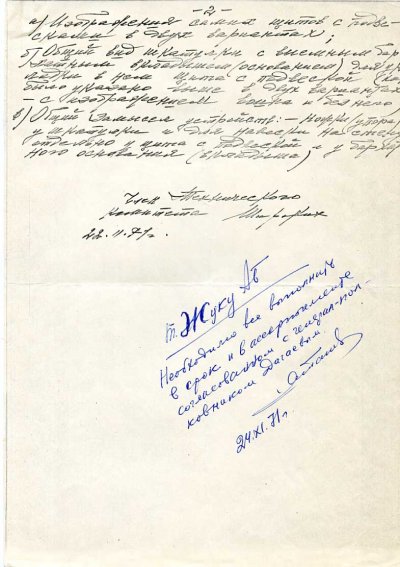 -2-
а) Изображения самих щитов с подве-
сками в двух вариантах;
б) Общий вид шкатулки с съемным бар-
хатным вкладышем (основанием) для
в нем щита с подвеской
было указано выше в двух вариантах
- с изображением и без него
в) Общий замысел устройств: - ножки (упора)
у шкатулки и для навески на стену
отдельно у щита с подвеской и у бархат-
ного основания (вкладыша)
Член Технического
комитета
22.11.71г.
т. Жуку АБ
Необходимо все выполнить
в срок и в ассортименте
согласованном с генерал-пол-
ковником Дагаевым.
24.XI.71г.